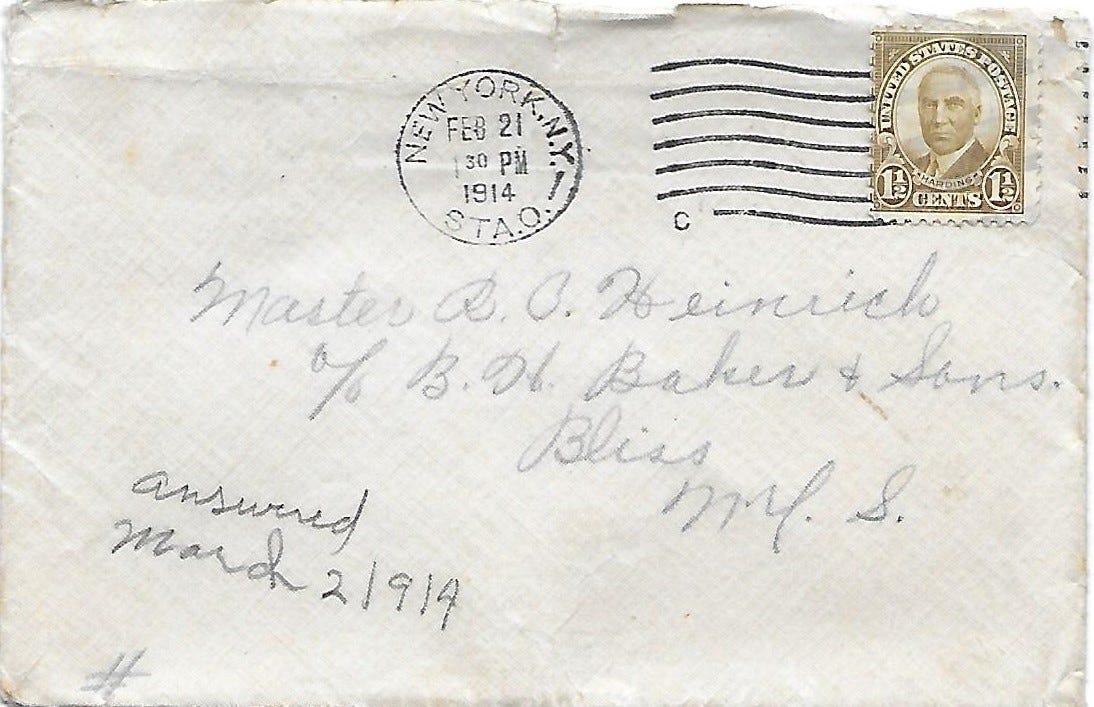 NEW YORK, N.Y.
FEB 21
1 30 PM
1914
STA. O.
C
UNITED STATES POSTAGE
HARDING
1½ CENTS 1½
Master R. C. Heinrich
c/o B. H. Baker & Sons.
Bliss
answered
March 2 1914
#